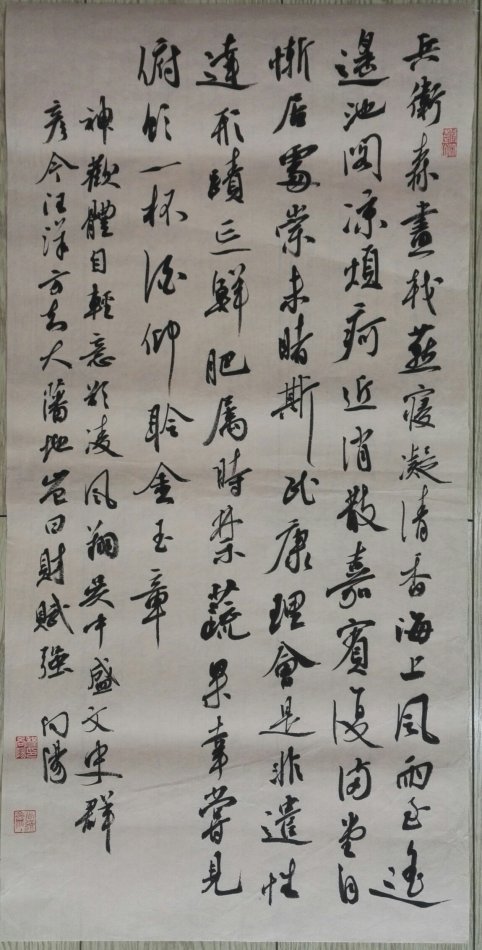 兵衛森畫戟燕寢凝清香海上風雨至逍
遙池閣凉煩疴近消散嘉賓復滿堂自
慚居處崇未睹斯民康理會是非遣性
達形蹟忘鮮肥属時禁蔬果幸嘗見
俯飲一杯酒仰聆金玉章
神歡體自輕意欲凌風翔吳中盛文史群
彦今汪洋方知大藩地豈曰財賦強 向陽